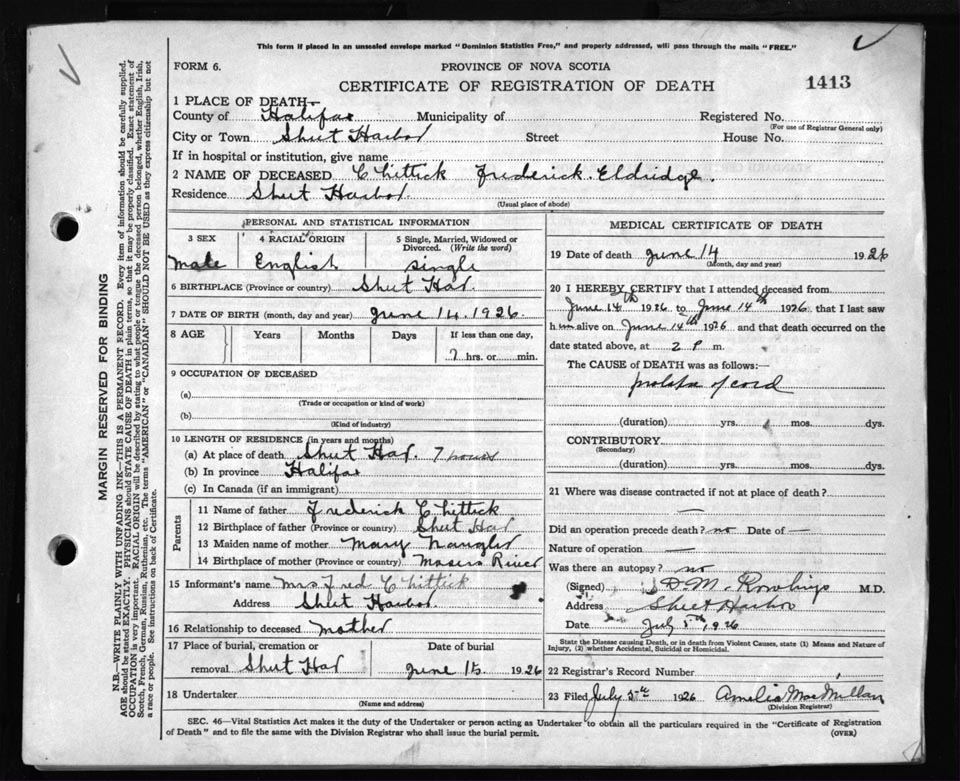 This form if placed in an unsealed envelope marked "Dominion Statistics Free," and properly addressed, will pass through the mails "FREE."
FORM 6.
PROVINCE OF NOVA SCOTIA
CERTIFICATE OF REGISTRATION OF DEATH
1413
1 PLACE OF DEATH—
County of Halifax Municipality of Registered No.
(For use of Registrar General only)
City or Town Sheet Harbor Street House No.
If in hospital or institution, give name
2 NAME OF DECEASED Chittick Frederick Eldridge.
Residence Sheet Harbor.
(Usual place of abode)
PERSONAL AND STATISTICAL INFORMATION
3 SEX
male
4 RACIAL ORIGIN
English
5 Single, Married, Widowed or Divorced. (Write the word)
single
6 BIRTHPLACE (Province or country) Sheet Har.
7 DATE OF BIRTH (month, day and year) June 14. 1926.
8 AGE Years Months Days If less than one day,
7 hrs. or min.
9 OCCUPATION OF DECEASED
(a)
(Trade or occupation or kind of work)
(b)
(Kind of industry)
10 LENGTH OF RESIDENCE (in years and months)
(a) At place of death Sheet Har. 7 hours
(b) In province Halifax
(c) In Canada (if an immigrant)
Parents
11 Name of father Frederick Chittick
12 Birthplace of father (Province or country) Sheet Har
13 Maiden name of mother Mary Naugler
14 Birthplace of mother (Province or country) Mosers River
15 Informant's name Mrs Fred Chittick
Address Sheet Harbor.
16 Relationship to deceased mother
17 Place of burial, cremation or removal Sheet Har
Date of burial
June 15 1926
18 Undertaker
(Name and address)
MEDICAL CERTIFICATE OF DEATH
19 Date of death June 14 1926
(Month, day and year)
20 I HEREBY CERTIFY that I attended deceased from
June 14th 1926 to June 14th 1926 that I last saw
h im alive on June 14th 1926 and that death occurred on the
date stated above, at 2 P m.
The CAUSE of DEATH was as follows:—
of cord
(duration) yrs. mos. dys.
CONTRIBUTORY
(Secondary)
(duration) yrs. mos. dys.
21 Where was disease contracted if not at place of death?
—
Did an operation precede death? no Date of —
Nature of operation —
Was there an autopsy? no
(Signed) D.M. Rowlings M.D.
Address Sheet Harbor
Date July 5th, 1926
State the Disease causing Death, or in death from Violent Causes, state (1) Means and Nature of Injury, (2) whether Accidental, Suicidal or Homicidal.
22 Registrar's Record Number
23 Filed July 5th 1926 Amelia MacMillan
(Division Registrar)
SEC. 46—Vital Statistics Act makes it the duty of the Undertaker or person acting as Undertaker to obtain all the particulars required in the "Certificate of Registration
of Death" and to file the same with the Division Registrar who shall issue the burial permit. (OVER)
MARGIN RESERVED FOR BINDING
N.B.—WRITE PLAINLY WITH UNFADING INK—THIS IS A PERMANENT RECORD. Every item of information should be carefully supplied.
AGE should be stated EXACTLY. PHYSICIANS should STATE CAUSE OF DEATH in plain terms, so that it may be properly classified. Exact statement of
OCCUPATION is very important. RACIAL ORIGIN will be described by stating to what people or tongue the deceased person belonged, whether English, Irish,
Scotch, French, German, Russian, Ruthenian, etc. The terms "AMERICAN" or "CANADIAN" SHOULD NOT BE USED as they express citizenship but not
a race or people. See instructions on back of Certificate.